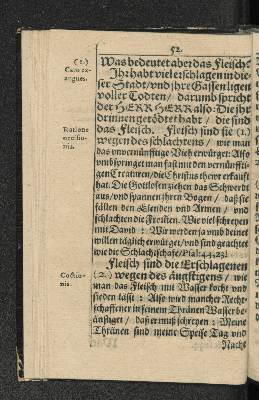 52.
(1.)
Caro ex-
angues.
Was bedeutet aber das Fleisch?
Ihr habt viel erschlagen in die-
ser Stadt/ vnd jhre Gassen ligen
voller Todten/ darumb spricht
der HERR HERR also: Die jhr
drinnen getödtet habt/ die sind
das Fleisch. Fleisch sind sie (1.)
Ratione
occisio-
nis.
wegen des schlachtens/ wie man
das vnvernünfftige Vieh erwürget: Also
vmbspringet man fast mit den vernünffti-
gen Creaturen/ die Christus thewr erkaufft
hat. Die Gottlosen ziehen das Schwerdt
aus/ vnd spannen jhren Bogen/ daß sie
fällen den Elenden vnd Armen/ vnd
schlachten die Frommen. Wie viel schreyen
mit David: Wir werden ja vmb deinet
willen täglich erwürget/ vnd sind geachtet
wie die Schlachtschafe/ Psal: 44, 23.
Fleisch sind die Erschlagenen
Coctio-
nis.
(2.) wegen des ängstigens/ wie
man das Fleisch mit Wasser kocht vnd
sieden lässt: Also wird mancher Recht-
schaffener in seinem Thränen Wasser be-
änstiget/ daß er muß schreyen: Meine
Thränen sind meine Speise Tag vnd
Nacht